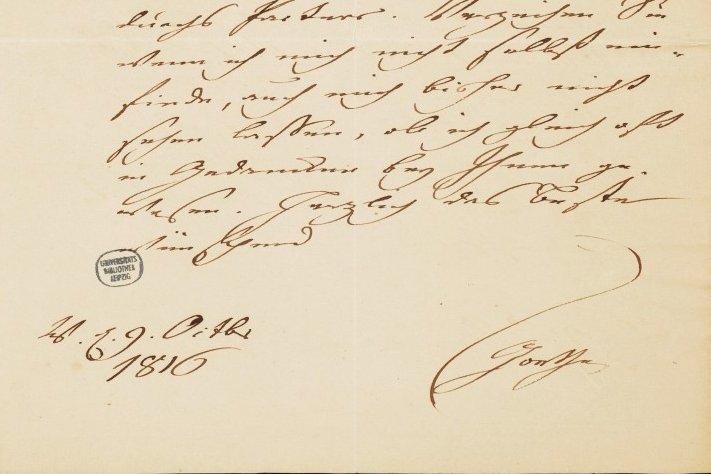 durchs Fenster. Verzeihen Sie
wenn ich mich nicht selbst ein-
finde, auch mich bisher nicht
sehen lassen, ob ich gleich oft
in Gedancken bey Ihnen ge-
wesen. Herzlich das Beste
wünschend
UNIVERSITÄTS
BIBLIOTHEK
LEIPZIG
W. d. 9. Octbr
1816
Goethe